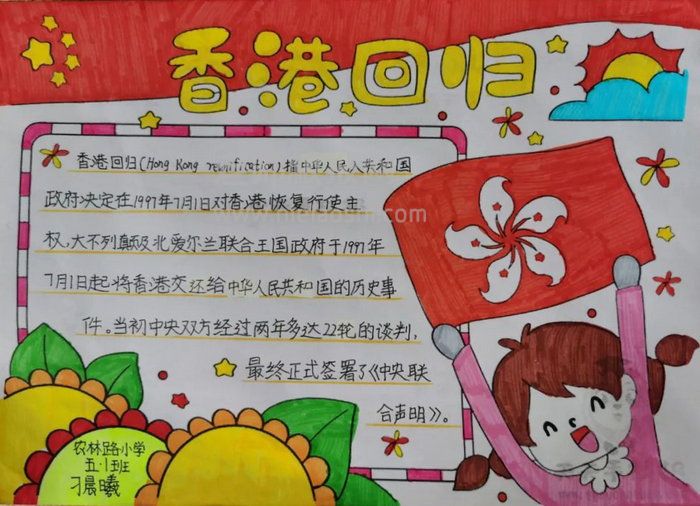 香港回归
香港回归(Hong Kong reunification)指中华人民共和国
政府决定在1997年7月1日对香港恢复行使主
权,大不列颠及北爱尔兰联合王国政府于1997年
7月1日起将香港交还给中华人民共和国的历史事
件。当初中央双方经过两年多达22轮的谈判,
最终正式签署了《中央联
合声明》。
农林路小学
五·1班
刁晨曦